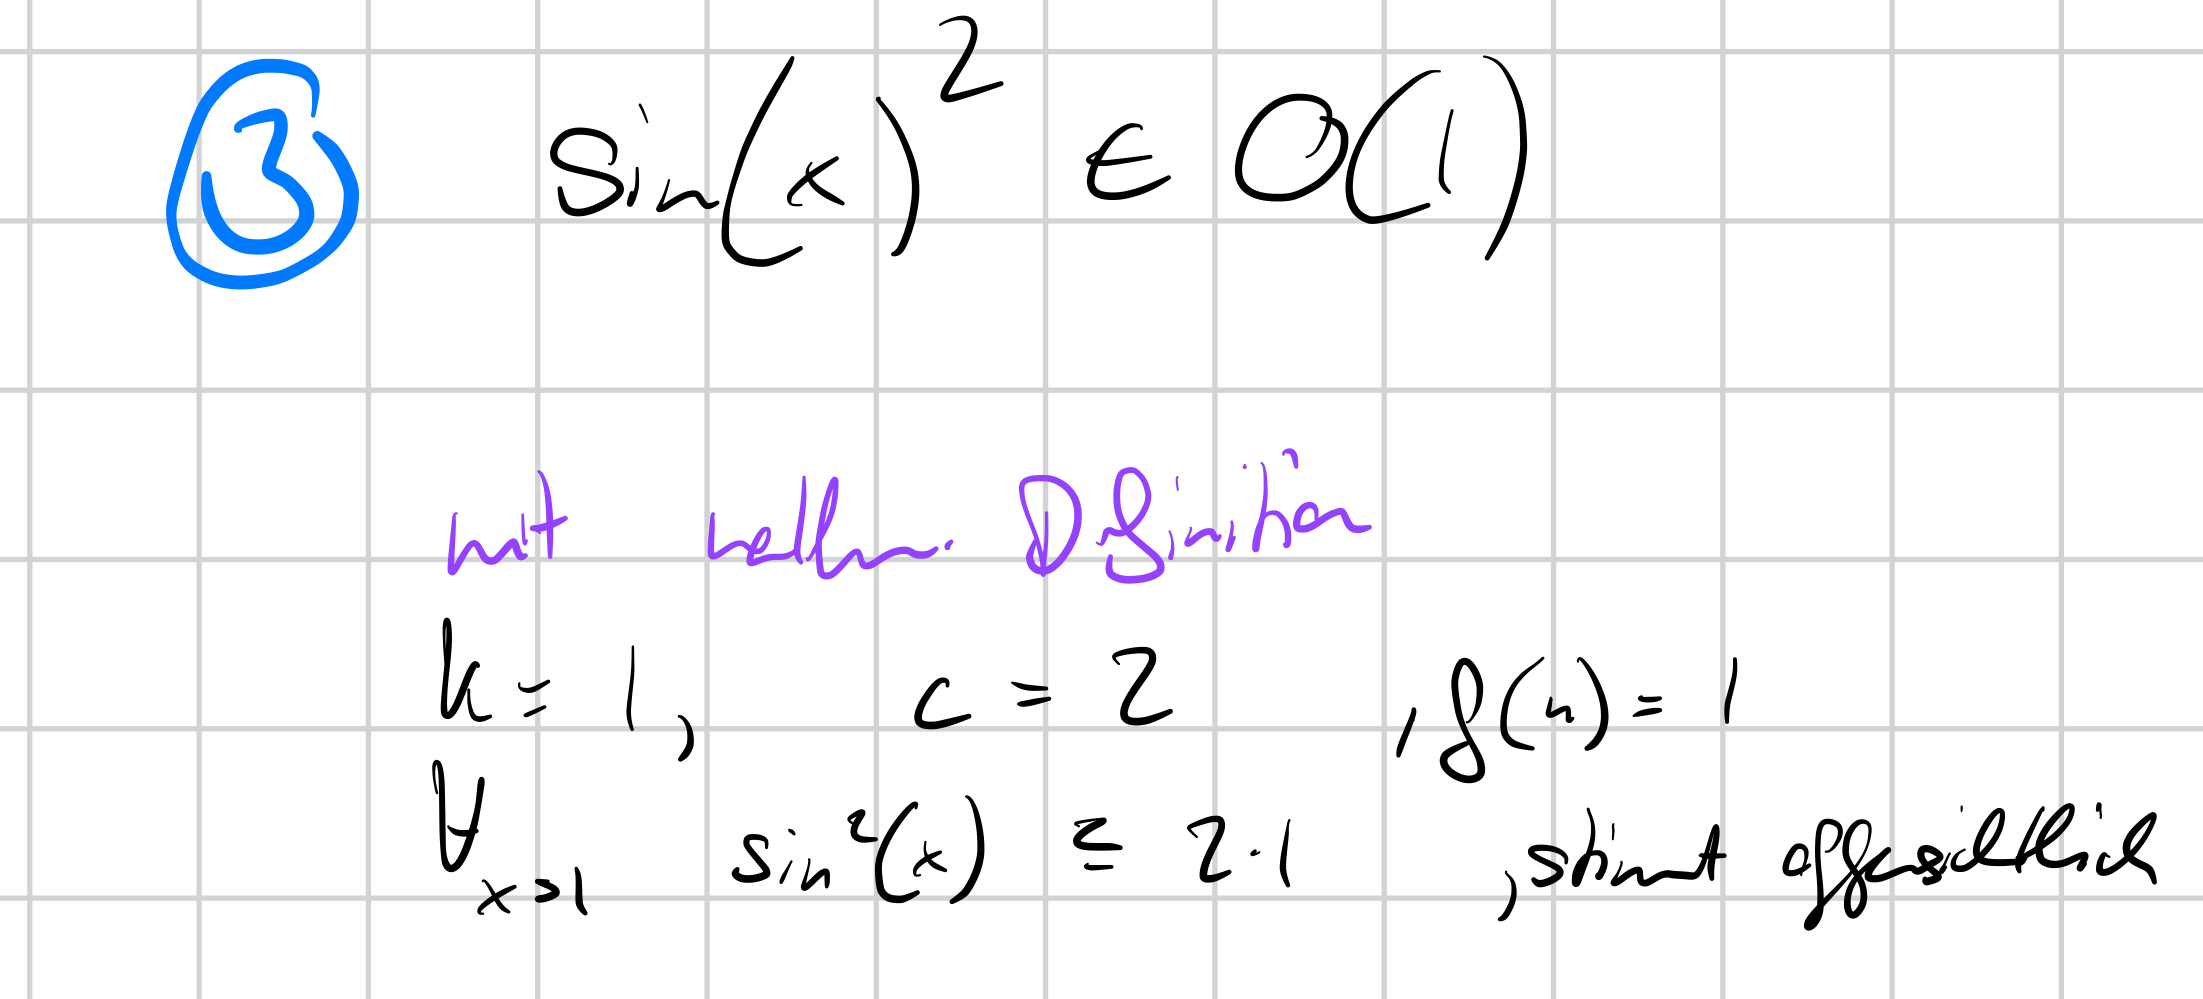 ③ Sin(x)² ∈ O(1)
mit Definition
k = 1, c = 2 , f(n) = 1
∀x>1 sin²(x) ≤ 2·1 , stimmt offensichtlich